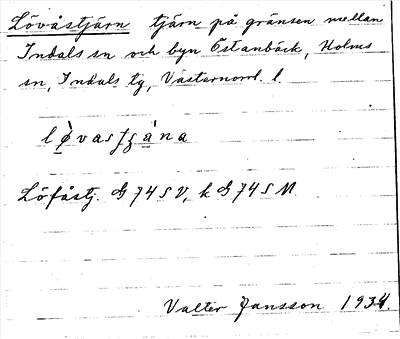 Lövåstjärn tjärn på gränsen mellan
Indals sn och byn Östanbäck, Holms
sn, Indals tg, Västernorrl. l.
Löfåstj. G 74 S V, k G 74 S M
Valter Jansson 1934.